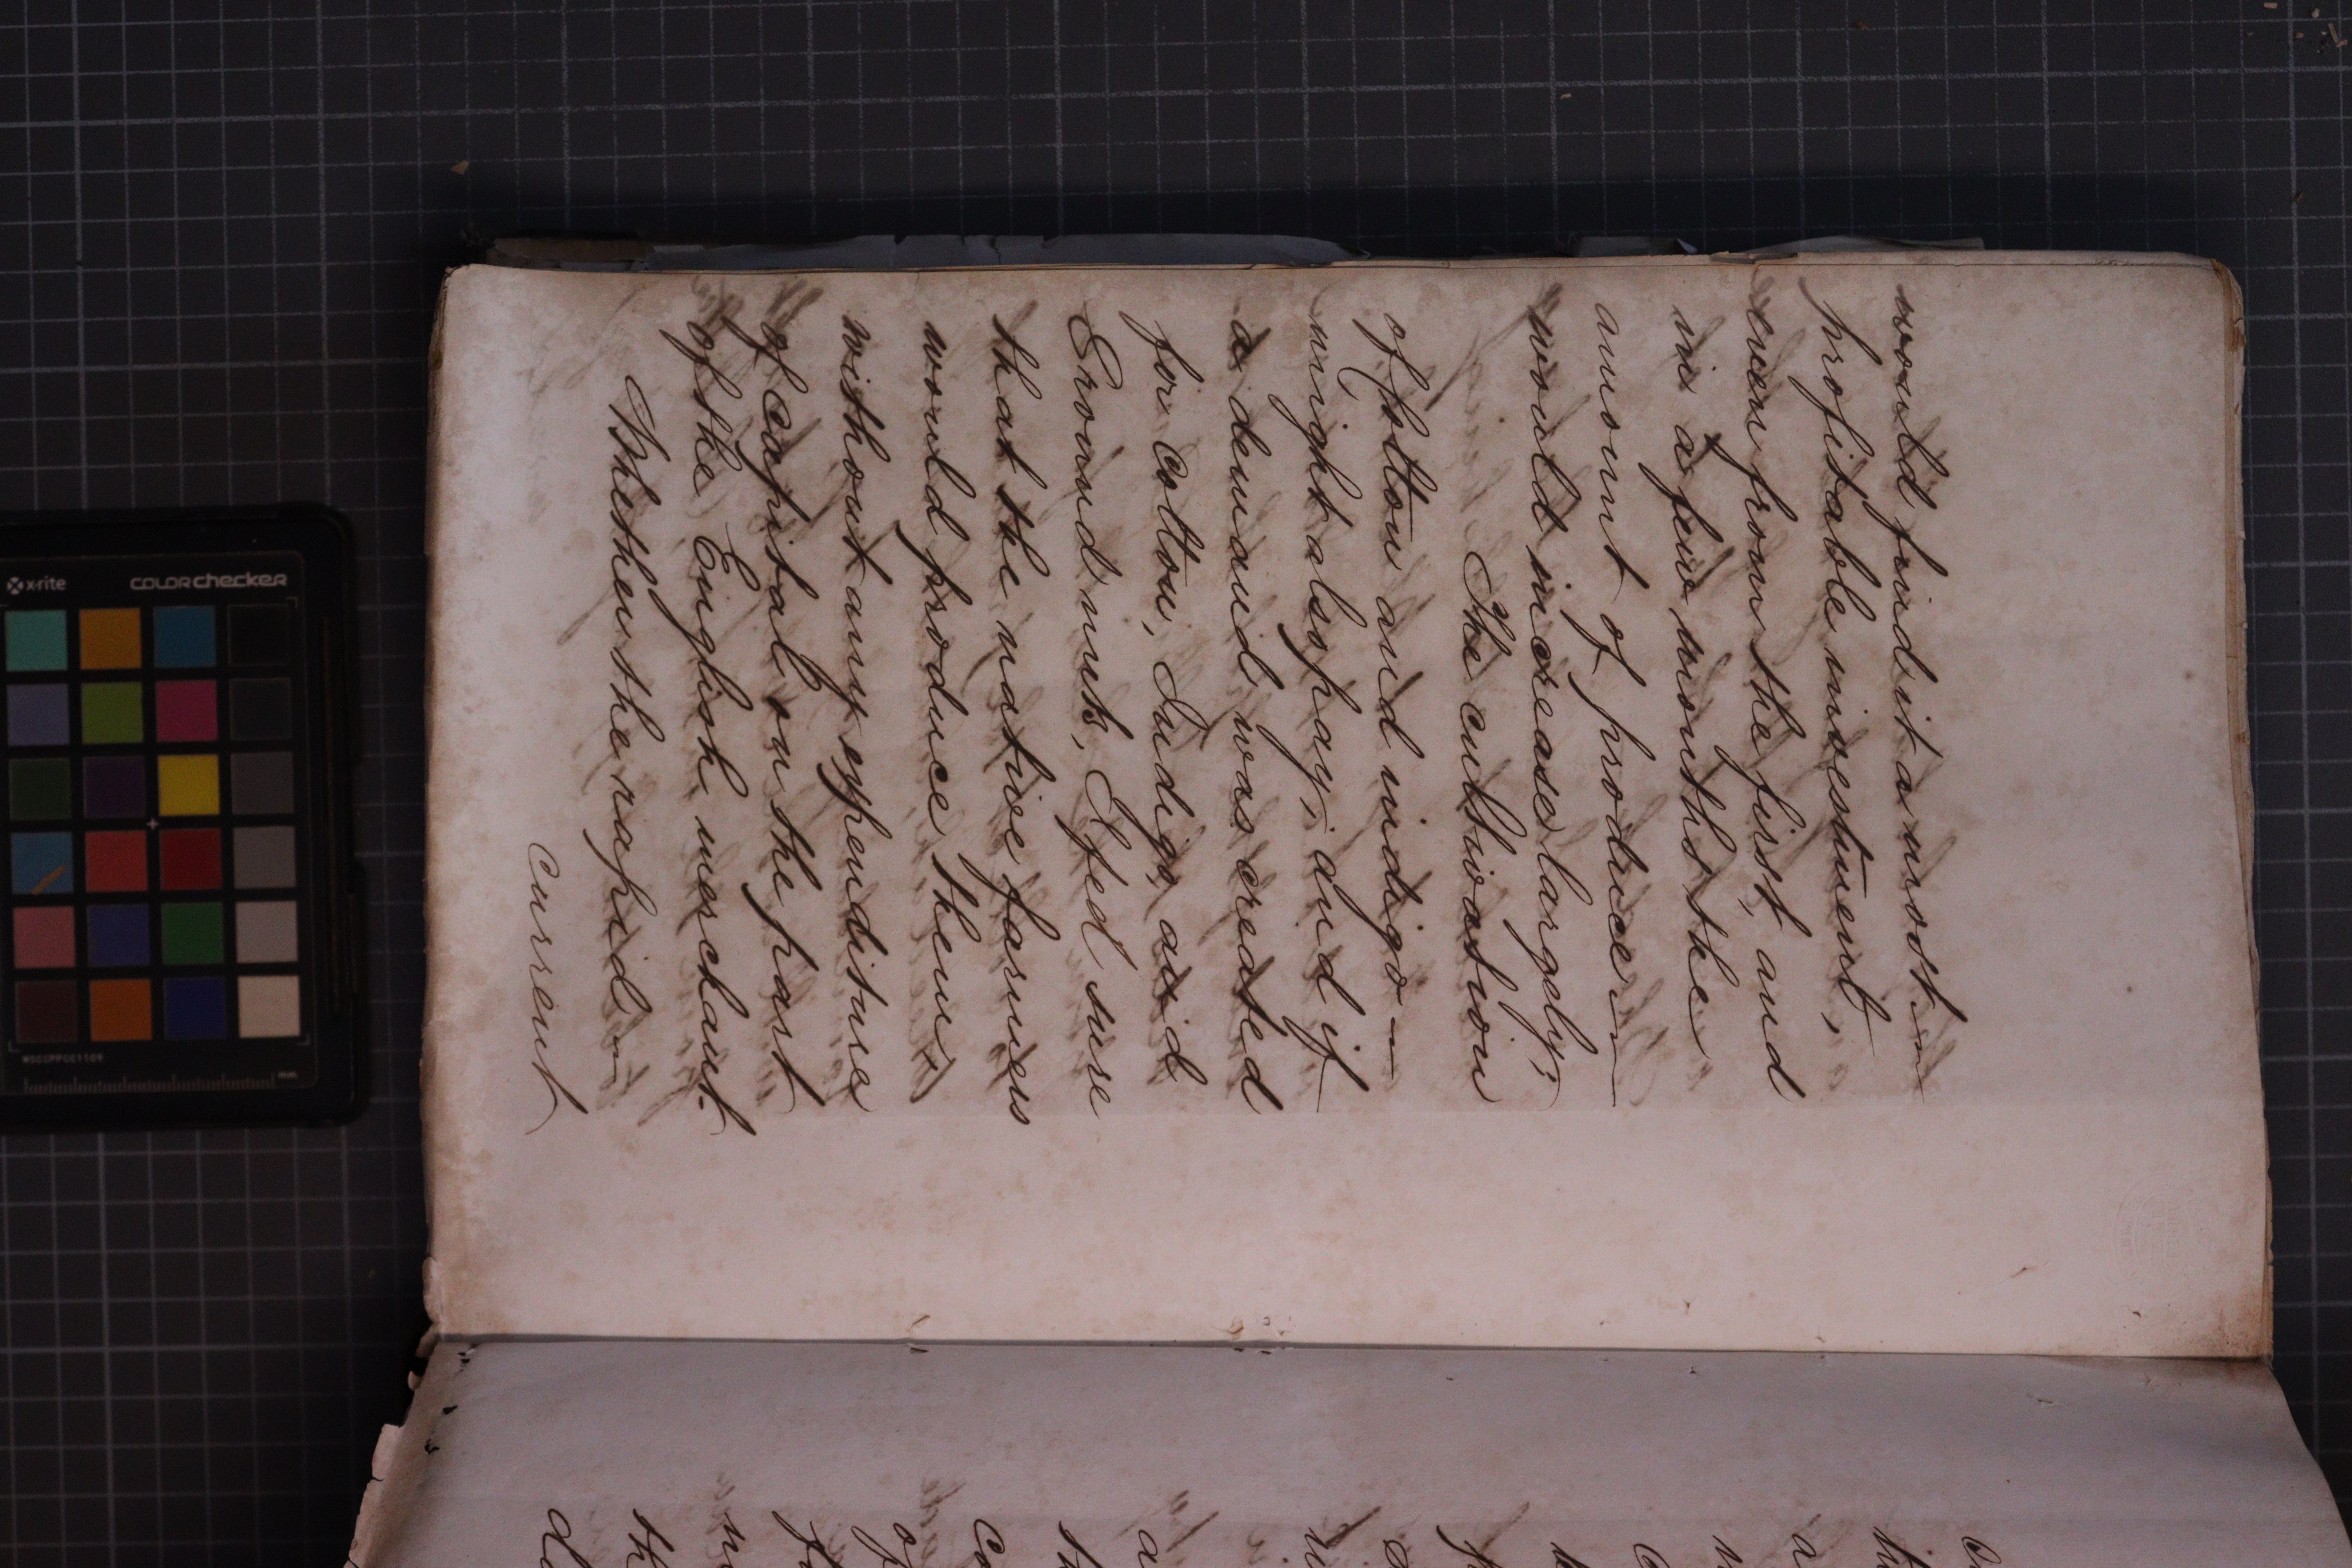 would find it a most
profitable investment,
even from the first, and
in a few months the
amount of produce
would increase largely;
The cultivation
of Cotton and indigo
might also pay; and if
a demand was created
for cotton, Indigo, and
Ground nuts, I feel sure
that the native farmers
would produce them,
without any expenditure
of capital on the part
of the English merchant.
Whether the rapid
current
x-rite
colorchecker
MSCCPPCC1109
mm